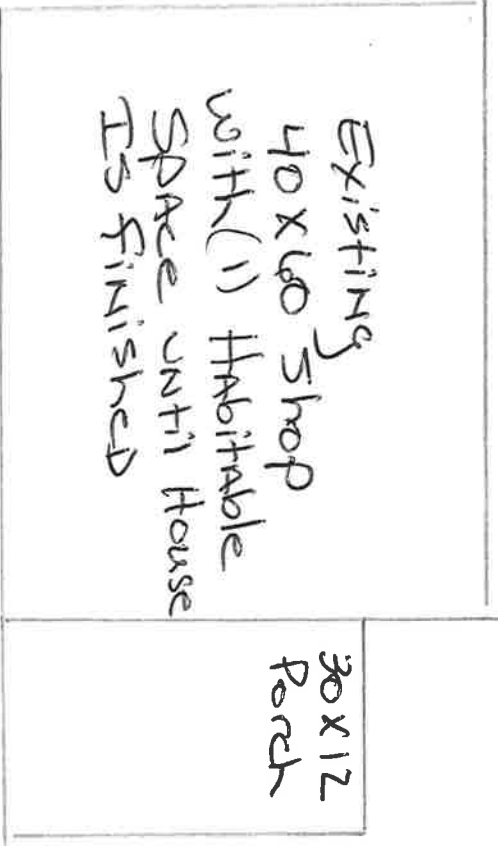 Existing
40 x 60 Shop
with (1) Habitable
Space until House
Is finished
30 x 12
Porch